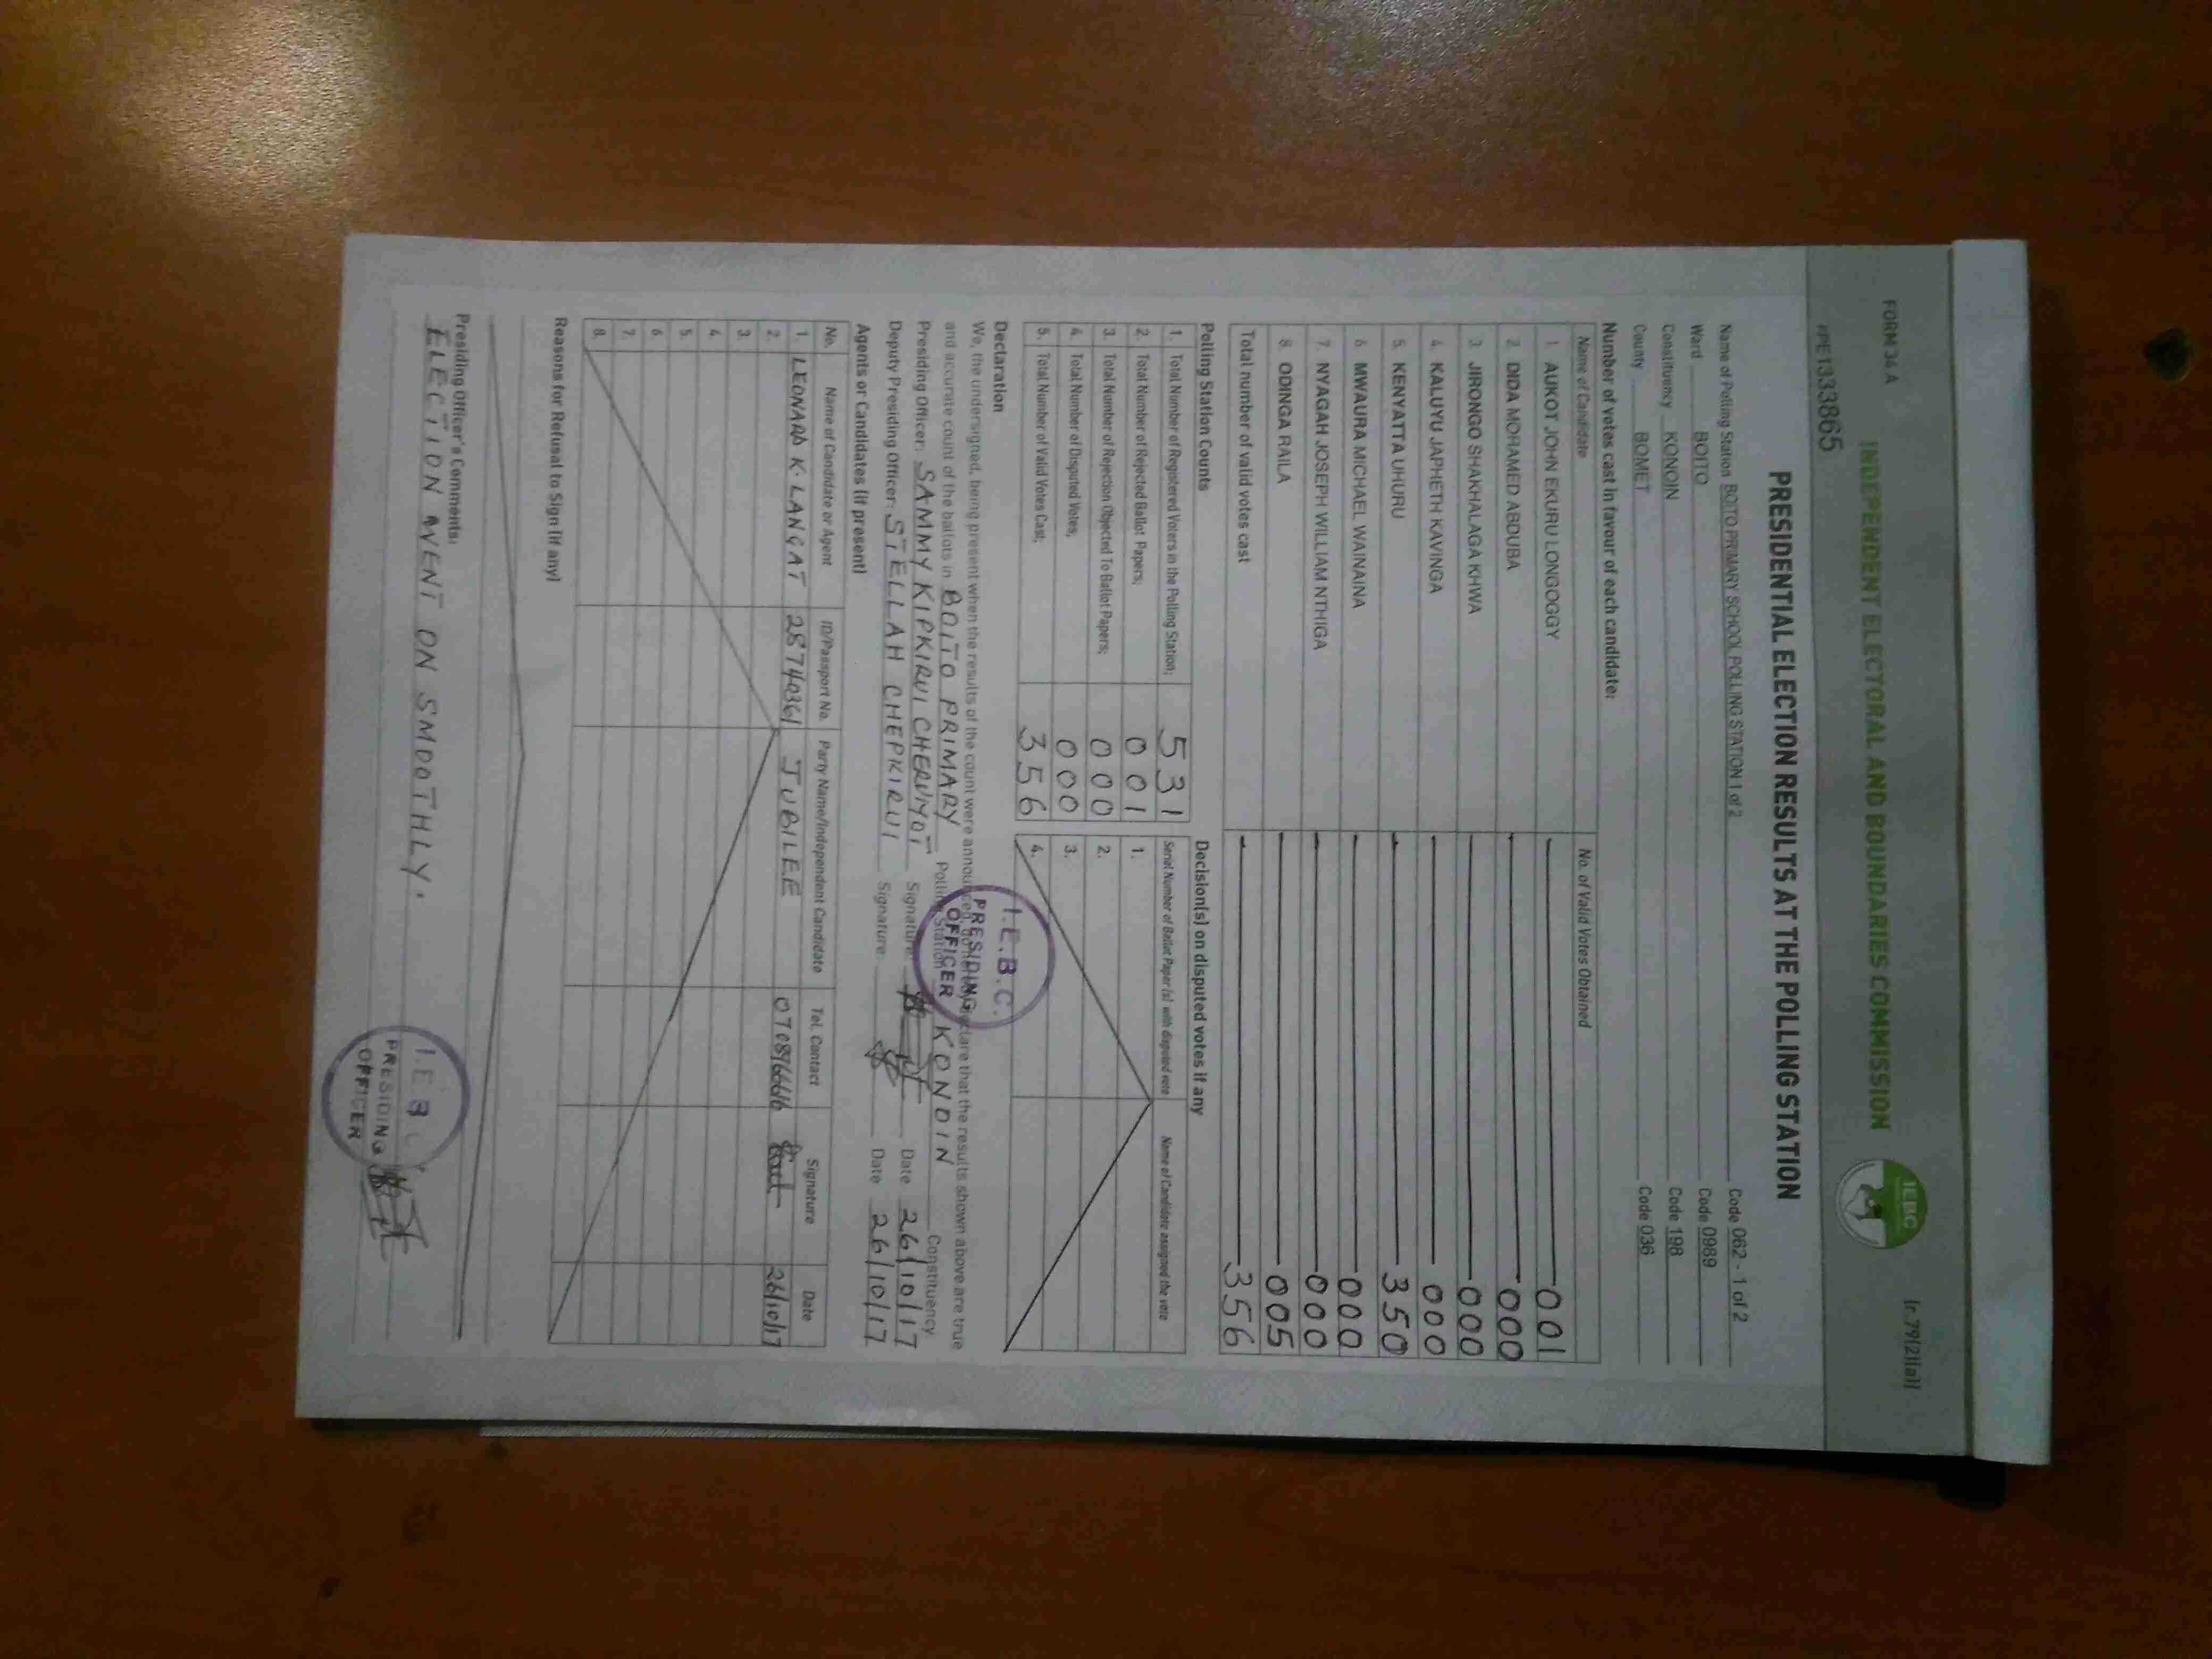 FORM 34 A
[r.79(2)(a)]
INDEPENDENT ELECTORAL AND BOUNDARIES COMMISSION
IEBC
PE1333865
PRESIDENTIAL ELECTION RESULTS AT THE POLLING STATION
Name of Polling Station BOITO PRIMARY SCHOOL POLLING STATION 1 of 2 Code 062 - 1 of 2
Ward BOITO Code 0989
Constituency KONOIN Code 198
County BOMET Code 036
Number of votes cast in favour of each candidate:
Name of Candidate No. of Valid Votes Obtained
1 AUKOT JOHN EKURU LONGOGGY 001
2 DIDA MOHAMED ABDUBA 000
3 JIRONGO SHAKHALAGA KHWA 000
4 KALUYU JAPHETH KAVINGA 000
5 KENYATTA UHURU 350
6 MWAURA MICHAEL WAINAINA 000
7 NYAGAH JOSEPH WILLIAM NTHIGA 000
8 ODINGA RAILA 005
Total number of valid votes cast 356
Polling Station Counts
1. Total Number of Registered Voters in the Polling Station; 531
2. Total Number of Rejected Ballot Papers; 001
3. Total Number of Rejection Objected To Ballot Papers; 000
4. Total Number of Disputed Votes; 000
5. Total Number of Valid Votes Cast; 356
Decision(s) on disputed votes if any
Serial Number of Ballot Paper (s) with disputed vote Name of Candidate assigned the vote
1.
2.
3.
4.
Declaration
We, the undersigned, being present when the results of the count were announced, do hereby declare that the results shown above are true
and accurate count of the ballots in BOITO PRIMARY Polling Station KONOIN Constituency
Presiding Officer: SAMMY KIPKIRUI CHERUIYOT Signature: Date 26/10/17
Deputy Presiding Officer: STELLAH CHEPKIRUI Signature: Date 26/10/17
I.E.B.C.
PRESIDING
OFFICER
Agents or Candidates (if present)
No. Name of Candidate or Agent ID/Passport No. Party Name/Independent Candidate Tel. Contact Signature Date
1. LEONARD K. LANGAT 28740361 JUBILEE 26/10/17
2.
3.
4.
5.
6.
7.
8.
Reasons for Refusal to Sign (if any)
Presiding Officer's Comments:
ELECTION WENT ON SMOOTHLY.
I.E.B
PRESIDING
OFFICER